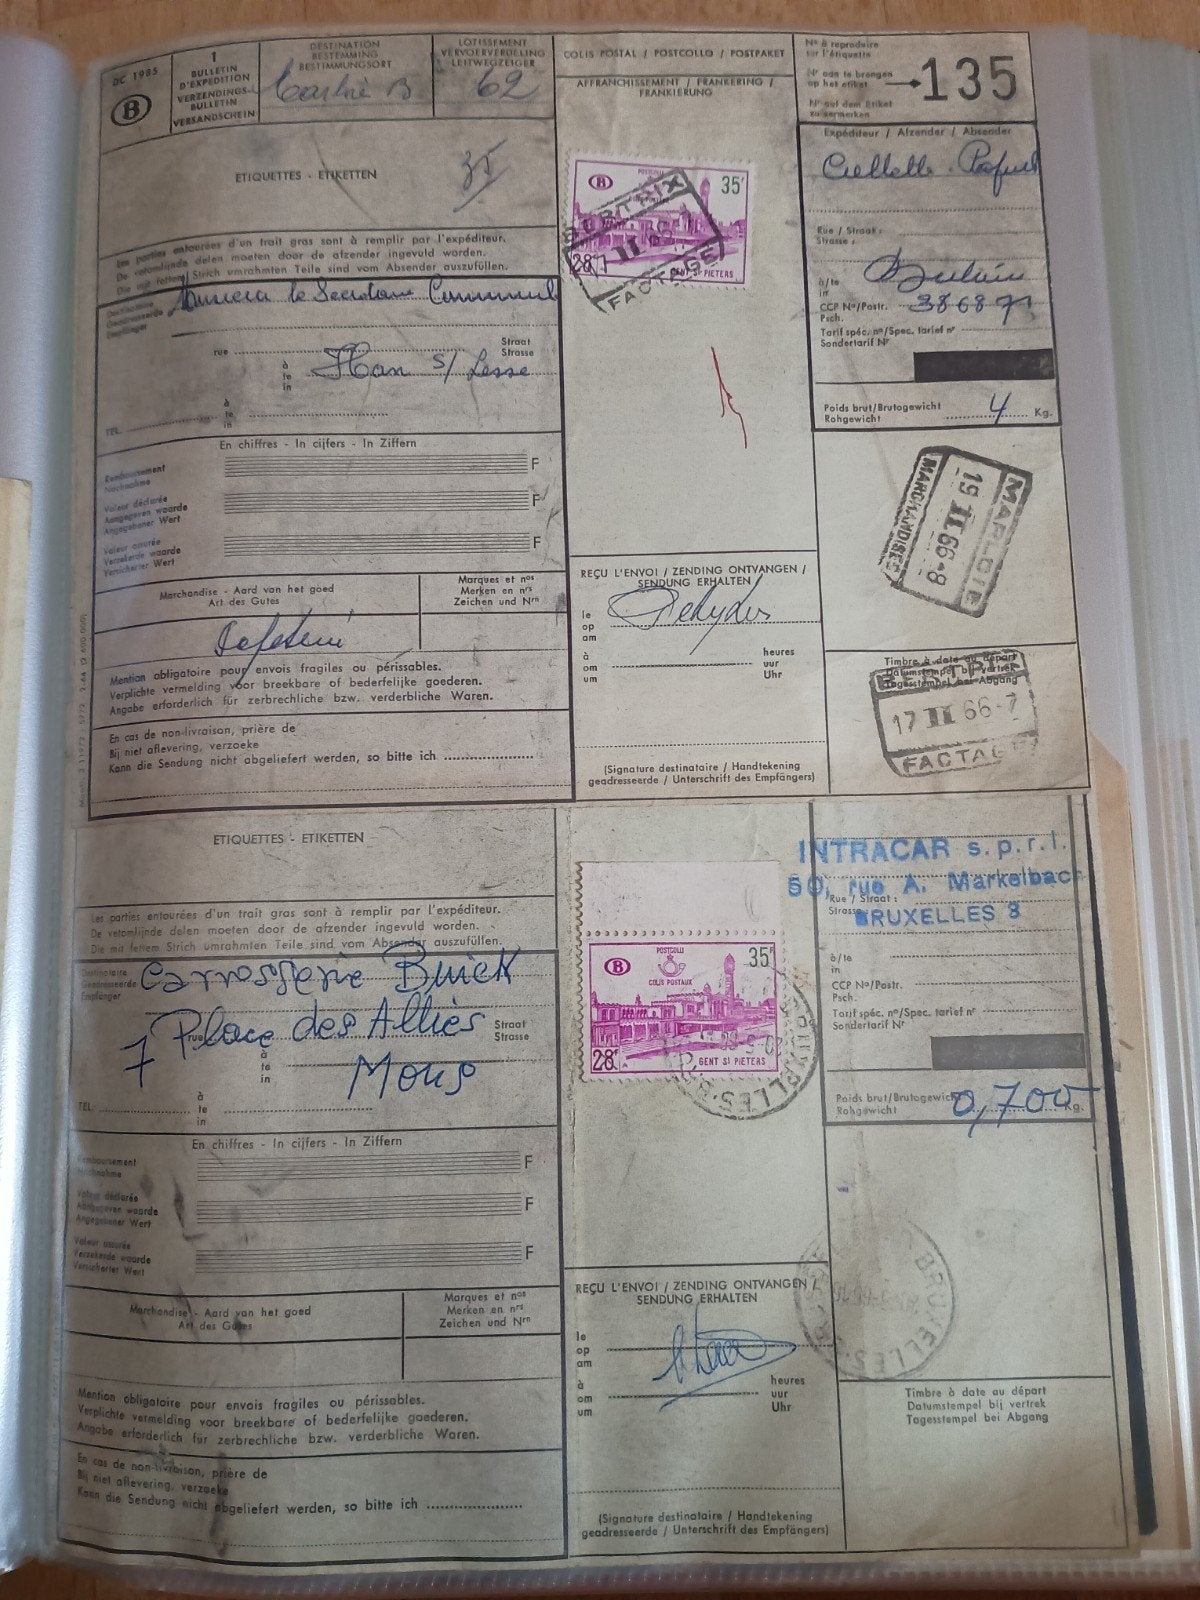 DC 1985
B
1
BULLETIN
D'EXPEDITION
VERZENDINGS-
BULLETIN
VERSANDSCHEIN
DESTINATION
BESTEMMING
BESTIMMUNGSORT
LOTISSEMENT
VERVOERVERDELING
LEITWEGZEIGER
62
COLIS POSTAL / POSTCOLLO / POSTPAKET
AFFRANCHISSEMENT / FRANKERING /
FRANKIERUNG
Nº à reproduire
sur l'étiquette
Nr aan te brengen
op het etiket
Nº auf dem Etiket
zu vermerken
135
ETIQUETTES - ETIKETTEN
35
Les parties entourées d'un trait gras sont à remplir par l'expéditeur.
De vetomlijnde delen moeten door de afzender ingevuld worden.
Die mit fettem Strich umrahmten Teile sind vom Absender auszufüllen.
Destinataire
Geadresseerde
Empfänger
Monsieur le Secrétaire Communal
rue
Straat
Strasse
à
te
in
Han s/ Lesse
à
te
in
TEL.
En chiffres - In cijfers - In Ziffern
Remboursement
Nachnahme
F
Valeur déclarée
Aangegeven waarde
Angegebener Wert
F
Valeur assurée
Verzekerde waarde
Versicherter Wert
F
Marchandise - Aard van het goed
Art des Gutes
Marques et nos
Merken en nrs
Zeichen und Nrn
Mention obligatoire pour envois fragiles ou périssables.
Verplichte vermelding voor breekbare of bederfelijke goederen.
Angabe erforderlich für zerbrechliche bzw. verderbliche Waren.
En cas de non-livraison, prière de
Bij niet aflevering, verzoeke
Kann die Sendung nicht abgeliefert werden, so bitte ich
B
35F
28F
GENT St PIETERS
17 II 66
FACTAGE
REÇU L'ENVOI / ZENDING ONTVANGEN /
SENDUNG ERHALTEN
le
op
am
à
om
um
heures
uur
Uhr
(Signature destinataire / Handtekening
geadresseerde / Unterschrift des Empfängers)
Expéditeur / Afzender / Absender
Rue / Straat :
Strasse :
à/te
in
CCP Nº/Postr.
Psch.
386871
Tarif spéc. nº/Spec. tarief nº
Sondertarif Nr
Poids brut/Brutogewicht
Rohgewicht
4
Kg.
MARLOIE
19 II 66-8
MARCHANDISES
Timbre à date au départ
Datumstempel bij vertrek
Tagesstempel bei Abgang
17 II 66-7
FACTAGE
ETIQUETTES - ETIKETTEN
Les parties entourées d'un trait gras sont à remplir par l'expéditeur.
De vetomlijnde delen moeten door de afzender ingevuld worden.
Die mit fettem Strich umrahmten Teile sind vom Absender auszufüllen.
Destinataire
Geadresseerde
Empfänger
Carrosserie Buick
rue
7 Place des Alliés
Straat
Strasse
à
te
in
Mons
à
te
in
TEL.
En chiffres - In cijfers - In Ziffern
Remboursement
Nachnahme
F
Valeur déclarée
Aangegeven waarde
Angegebener Wert
F
Valeur assurée
Verzekerde waarde
Versicherter Wert
F
Marchandise - Aard van het goed
Art des Gutes
Marques et nos
Merken en nrs
Zeichen und Nrn
Mention obligatoire pour envois fragiles ou périssables.
Verplichte vermelding voor breekbare of bederfelijke goederen.
Angabe erforderlich für zerbrechliche bzw. verderbliche Waren.
En cas de non-livraison, prière de
Bij niet aflevering, verzoeke
Kann die Sendung nicht abgeliefert werden, so bitte ich
POSTCOLLI
B
COLIS POSTAUX
35F
28F
GENT St PIETERS
BRUXELLES
REÇU L'ENVOI / ZENDING ONTVANGEN /
SENDUNG ERHALTEN
le
op
am
à
om
um
heures
uur
Uhr
(Signature destinataire / Handtekening
geadresseerde / Unterschrift des Empfängers)
INTRACAR s.p.r.l.
50, rue A. Markelbach
BRUXELLES 8
Rue / Straat :
Strasse :
à/te
in
CCP Nº/Postr.
Psch.
Tarif spéc. nº/Spec. tarief nº
Sondertarif Nr
Poids brut/Brutogewicht
Rohgewicht
0,700
Kg.
BRUXELLES
Timbre à date au départ
Datumstempel bij vertrek
Tagesstempel bei Abgang